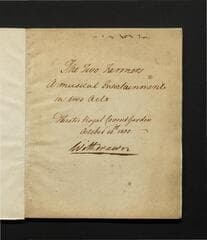 The Two Farmers
A musical Entertainment
in two Acts
Theatre Royal Covent Garden
October 28th 1800
Withdrawn